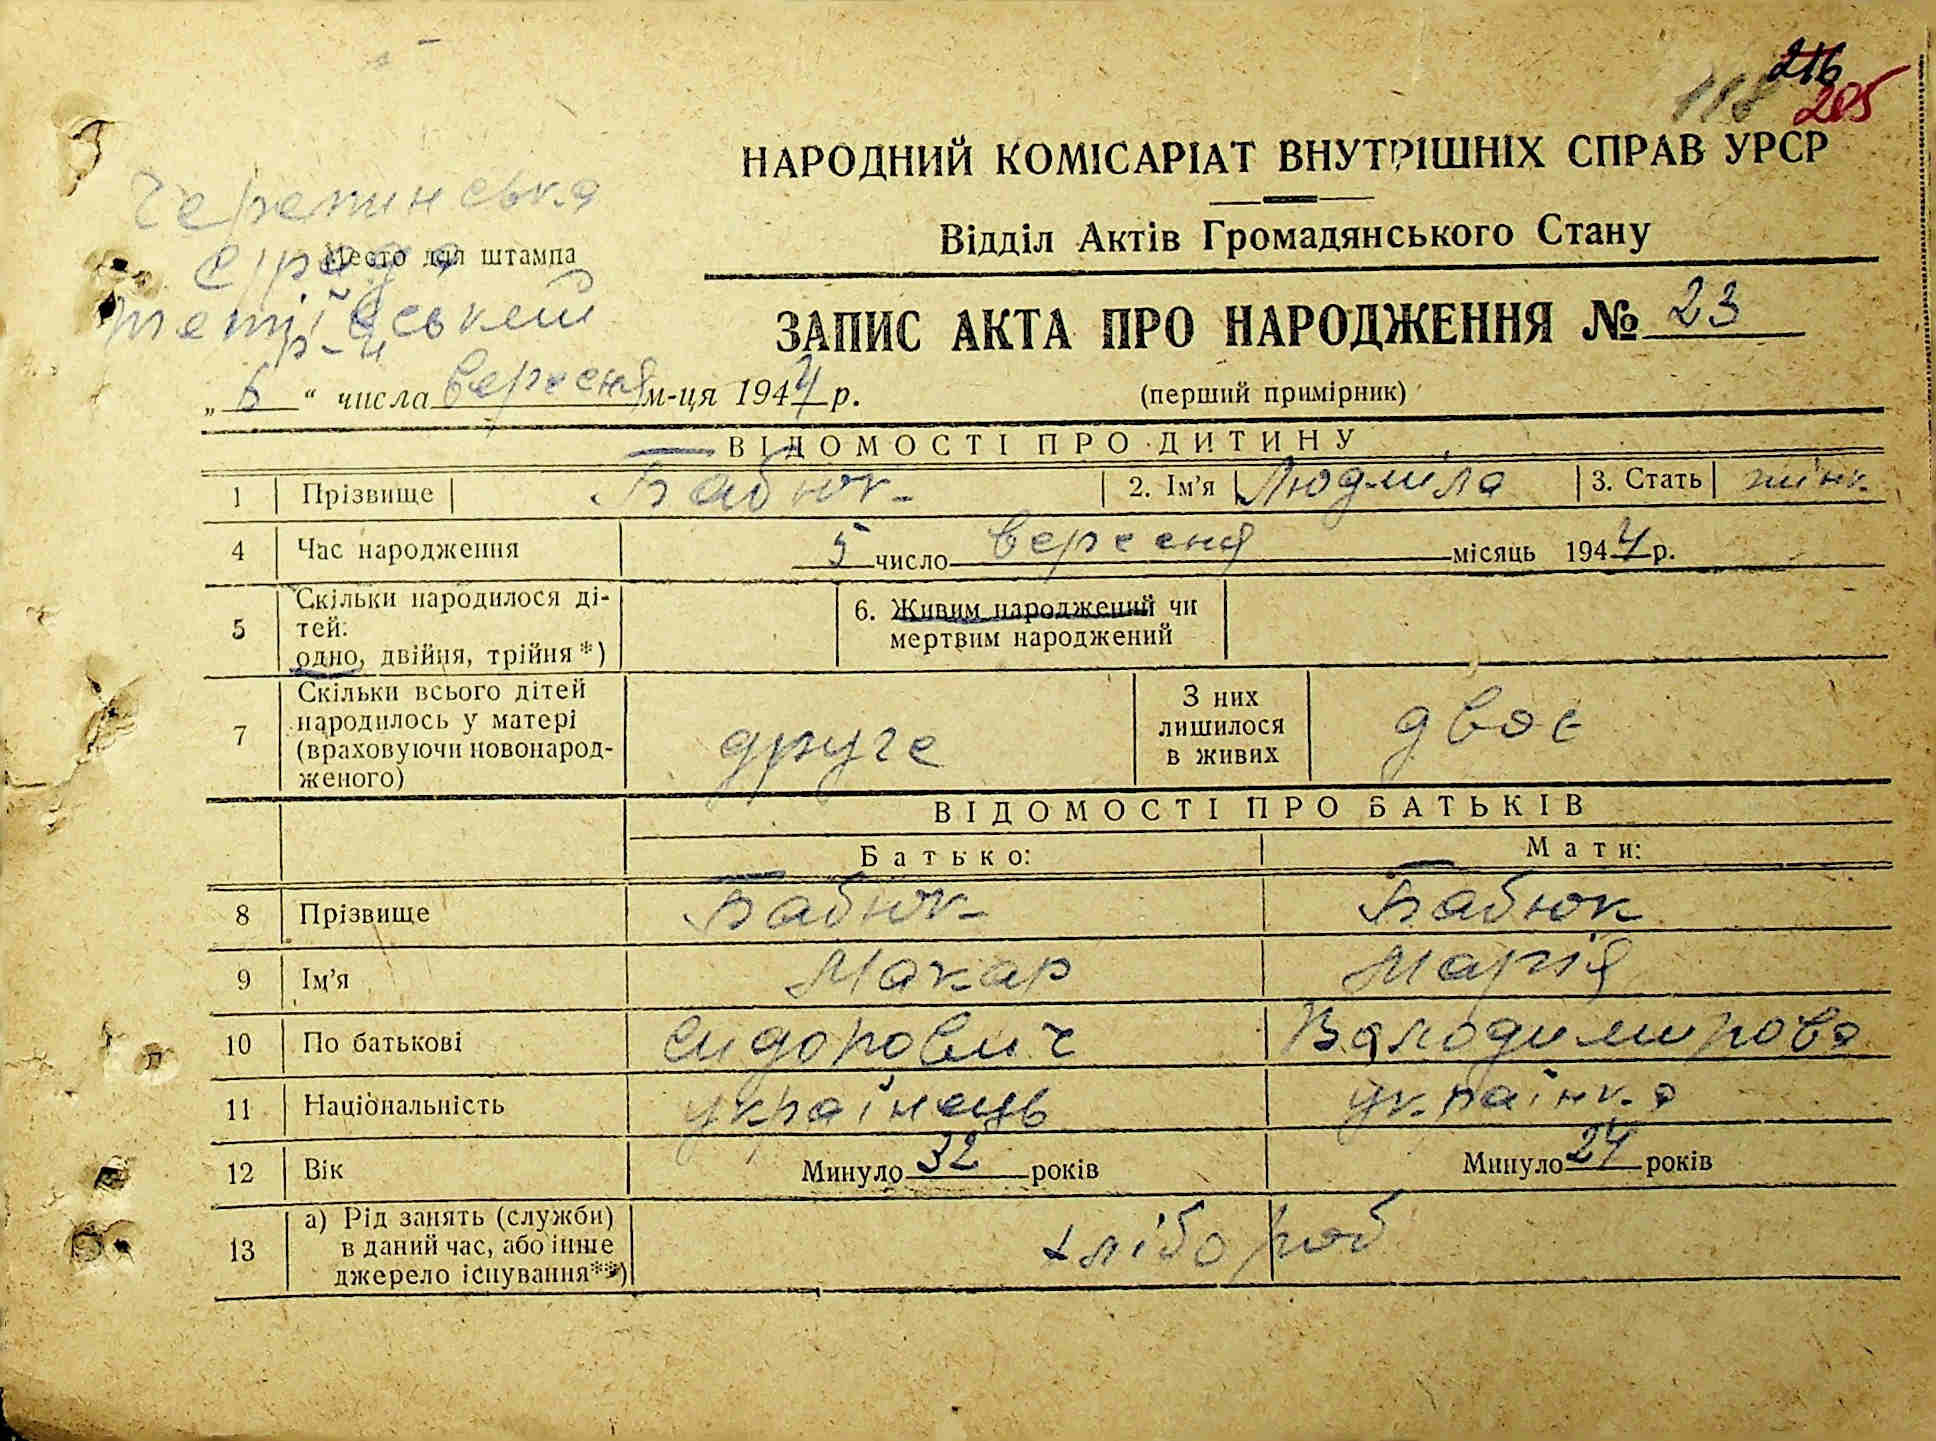 216
118 205
НАРОДНИЙ КОМІСАРІАТ ВНУТРІШНІХ СПРАВ УРСР
Відділ Актів Громадянського Стану
Черепинська
с/рада
Место для штампа
Тетіївський
р-н
ЗАПИС АКТА ПРО НАРОДЖЕННЯ № 23
„ 6 “ числа вересня м-ця 1944 р.
(перший примірник)
ВІДОМОСТІ ПРО ДИТИНУ
1 Прізвище Бабюк 2. Ім’я Людміла 3. Стать жінк.
4 Час народження 5 число вересня місяць 1944 р.
5 Скільки народилося ді-
тей:
одно, двійня, трійня*)
6. Живим народжений чи
мертвим народжений
7 Скільки всього дітей
народилось у матері
(враховуючи новонарод-
женого)
друге
З них
лишилося
в живих
двоє
ВІДОМОСТІ ПРО БАТЬКІВ
Батько: Мати:
8 Прізвище Бабюк Бабюк
9 Ім’я Макар Марія
10 По батькові Сидорович Володимирова
11 Національність українець українка
12 Вік Минуло 32 років Минуло 24 років
13 а) Рід занять (служби)
в даний час, або інше
джерело існування**)
хлібороб